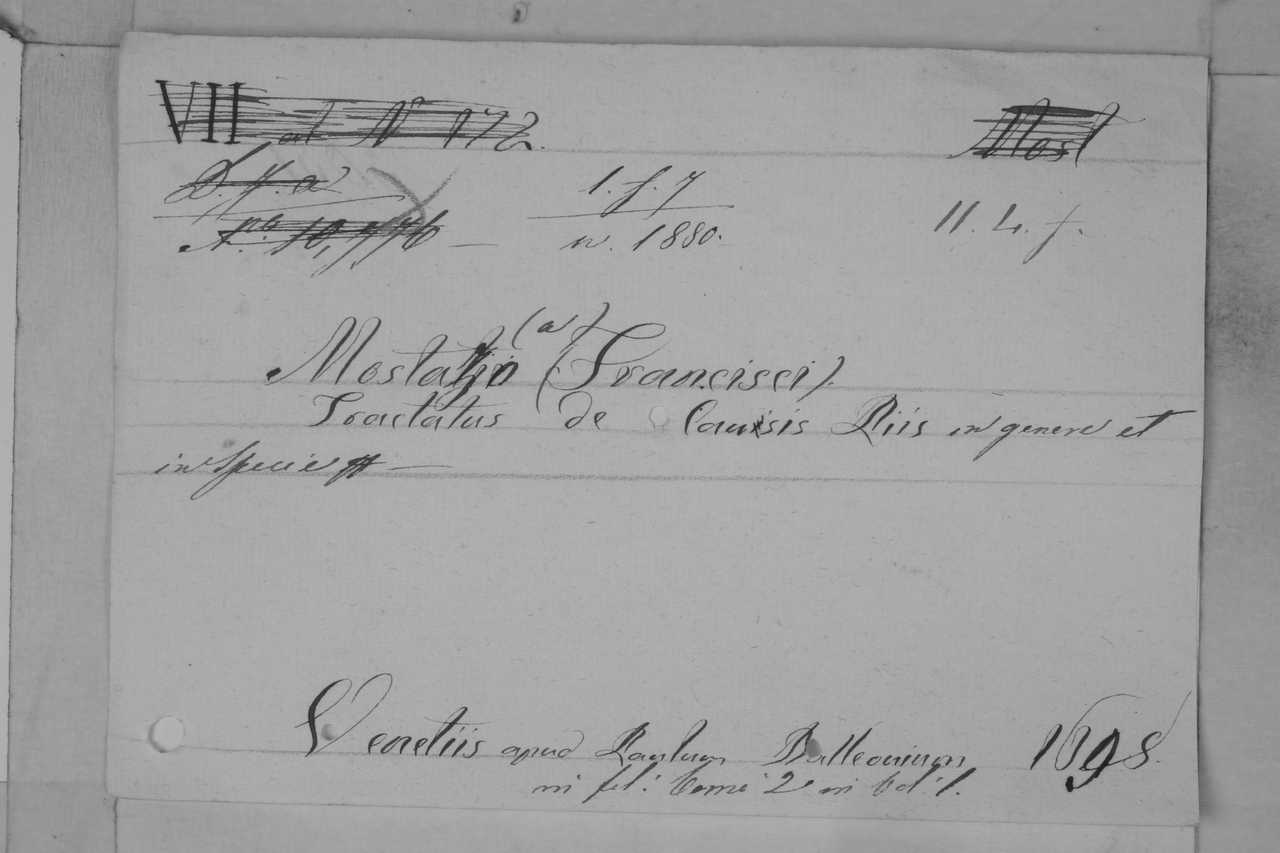 VII al N 172.
Most
D. f. a
1. f. 7
N.º 10,776 —
n. 1880.
11. L. f.
(a)
Mostazo (Francisci).
Tractatus de Causis Piis in genere et
in Specie —
Venetiis apud Paulum Balleonium 1698.
in fol. tomi 2 in vol. 1.